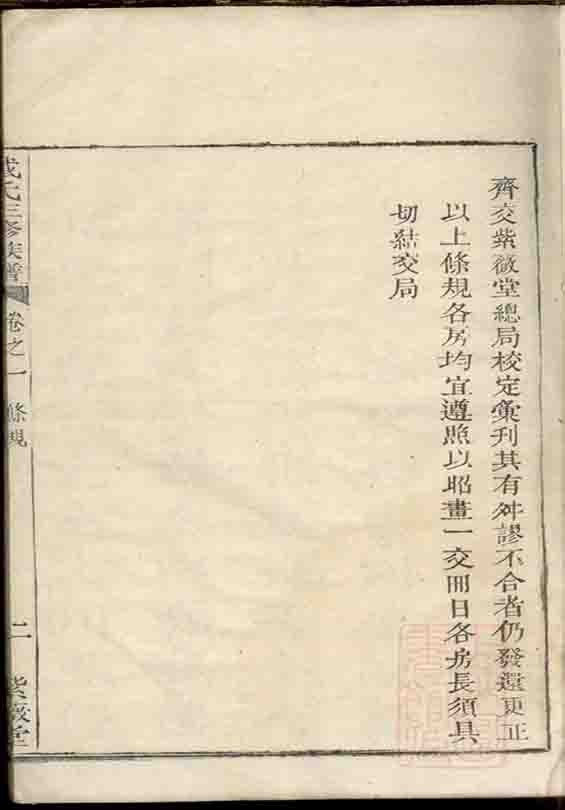 齊交紫薇堂總局校定彙刊其有舛謬不合者仍發還更正
以上條規各房均宜遵照以昭畫一交冊日各房長須具
切結交局
氏三修族譜
卷之一
條規
二
紫薇堂